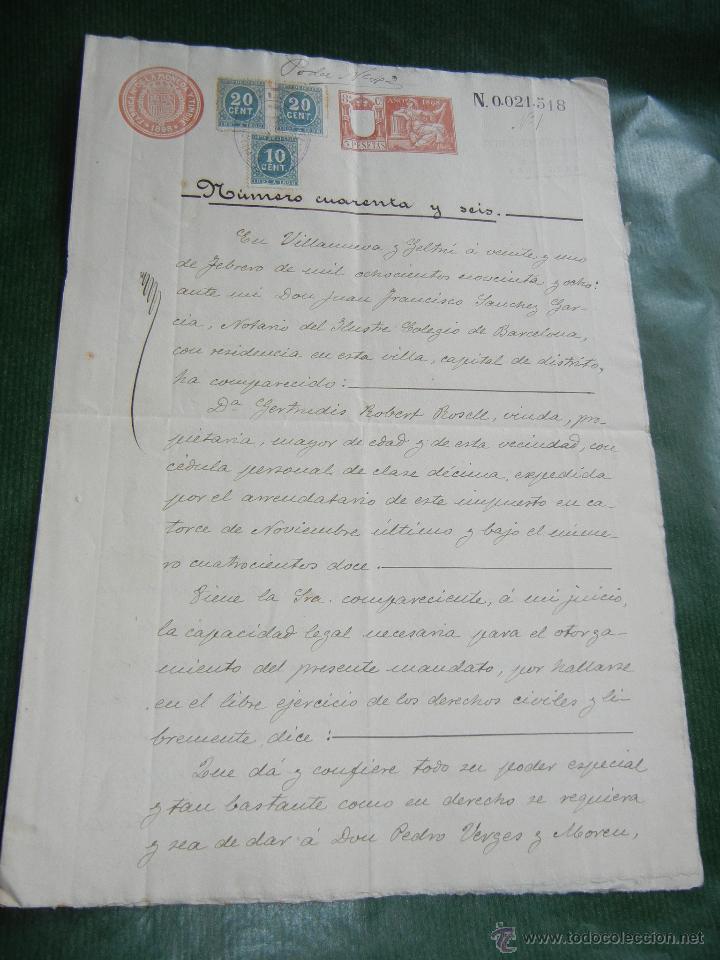 Poder
FABRICA NAL DE LA MONEDA Y TIMBRE
1898
20 CENT
1897 A 1898
20 CENT
1897 A 1898
10 CENT
1897 A 1898
AÑO 1898
PESETAS
N. 0.021.518
Número cuarenta y seis.
En Villanueva y Geltrú á veinte y uno
de Febrero de mil ochocientos noventa y ocho:
ante mí Don Juan Francisco Sanchez Gar-
cia, Notario del Ilustre Colegio de Barcelona,
con residencia en esta villa, capital de distrito,
ha comparecido:
Dª Gertrudis Robert Rosell, viuda, pro-
pietaria, mayor de edad y de esta vecindad, con
cédula personal de clase décima, expedida
por el arrendatario de este impuesto en ca-
torce de Noviembre último y bajo el núme-
ro cuatrocientos doce.
Tiene la Sra. compareciente, á mi juicio,
la capacidad legal necesaria para el otorga-
miento del presente mandato, por hallarse
en el libre ejercicio de los derechos civiles y li-
bremente, dice:
Que dá y confiere todo su poder especial
y tan bastante como en derecho se requiera
y sea de dar á Don Pedro Verges y Moreu,
© www.todocoleccion.net